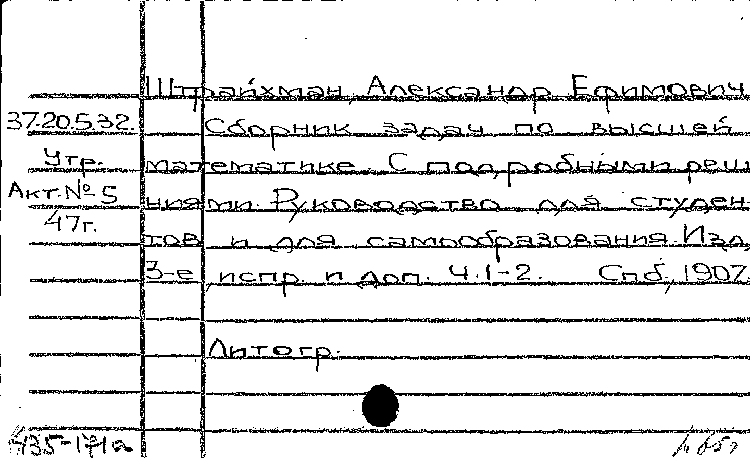 Штрайхман, Александр Ефимович.
37.20.5.32.
Сборник задач по высшей
Утр.
математике. С подробными реш
Акт. № 5
ниями. Руководство для студен-
47г.
тов и для самообразования. Изд.
3-е, испр. и доп. Ч.1-2. Спб., 1907.
Литогр.
435-171а